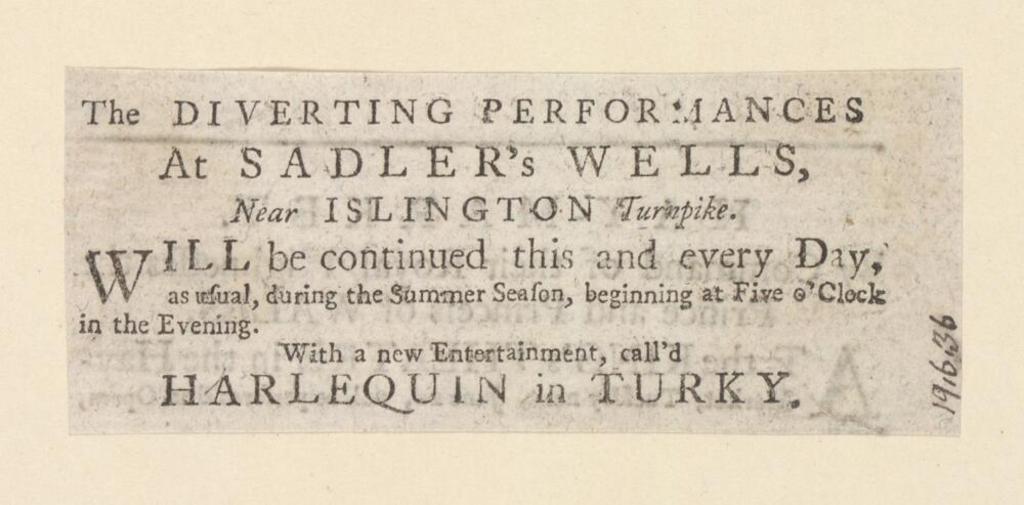 The DIVERTING PERFORMANCES
At SADLER's WELLS,
Near ISLINGTON Turnpike.
WILL be continued this and every Day,
as uſual, during the Summer Seaſon, beginning at Five o'Clock
in the Evening.
With a new Entertainment, call'd
HARLEQUIN in TURKY.
19.6.36